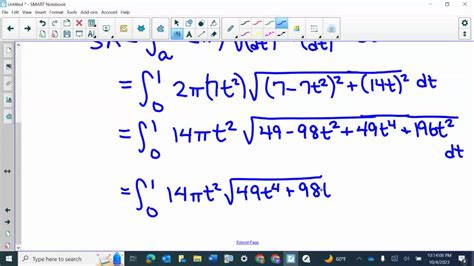 Untitled * - SMART Notebook
File Edit View Insert Format Tools Add-ons Account Help
SA = ∫ₐ 2π y √(dt) (dt)
= ∫₀¹ 2π(7t²) √(7-7t²)² + (14t)² dt
= ∫₀¹ 14πt² √49-98t²+49t⁴+196t² dt
= ∫₀¹ 14πt² √49t⁴+98t
Extend Page
Type here to search
60°F
10:14:08 PM
10/4/2023